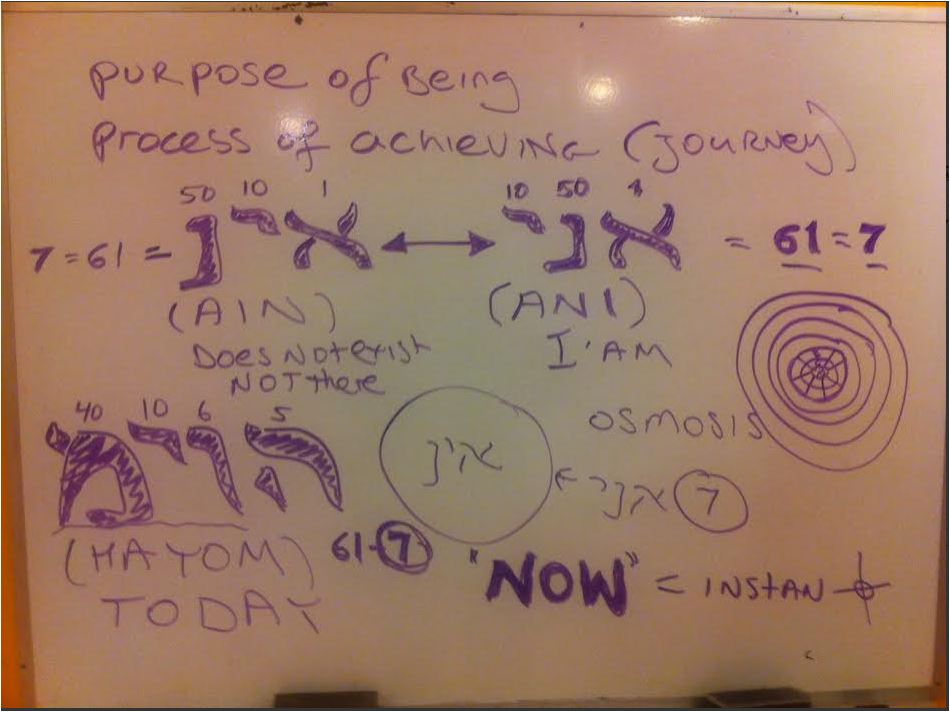 PURPOSE of Being
PROCESS of achieving (JOURNEY)
50 10 1
10 50 1
7 = 61 = אינ ↔ אני = 61 = 7
(AIN) (ANI)
Does Not exist I'AM
NOT there
OSMOSIS
40 10 6 5
הוימ
אינ ← אני 7
(HAYOM) 61-7
TODAY
"NOW" = INSTAN